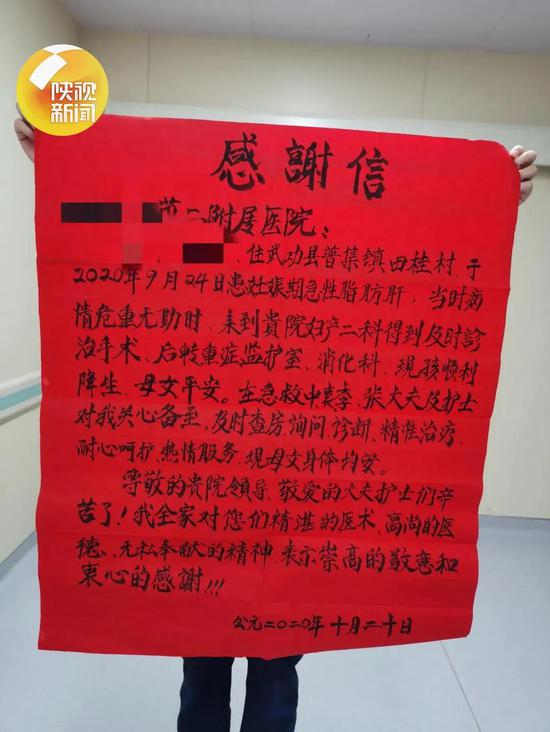 陕视
新闻
感謝信
第二附属医院：
住武功县普集镇田桂村、于
2020年9月24日患妊娠期急性脂肪肝，当时病
情危重无助时、来到貴院妇产二科得到及时診
治手术、后转重症监护室、消化科、現孩顺利
降生、母女平安。在急救中袁李、张大夫及护士
对我关心备至，及时查房询问，诊断、精准治疗、
耐心呵护、热情服务、現母女身体均安。
尊敬的貴院领导、敬爱的大夫护士们辛
苦了！我全家对您们精湛的医术、高尚的医
德、无私奉献的精神、表示崇高的敬意和
衷心的感謝!!!
公元二〇二〇年十月二十日